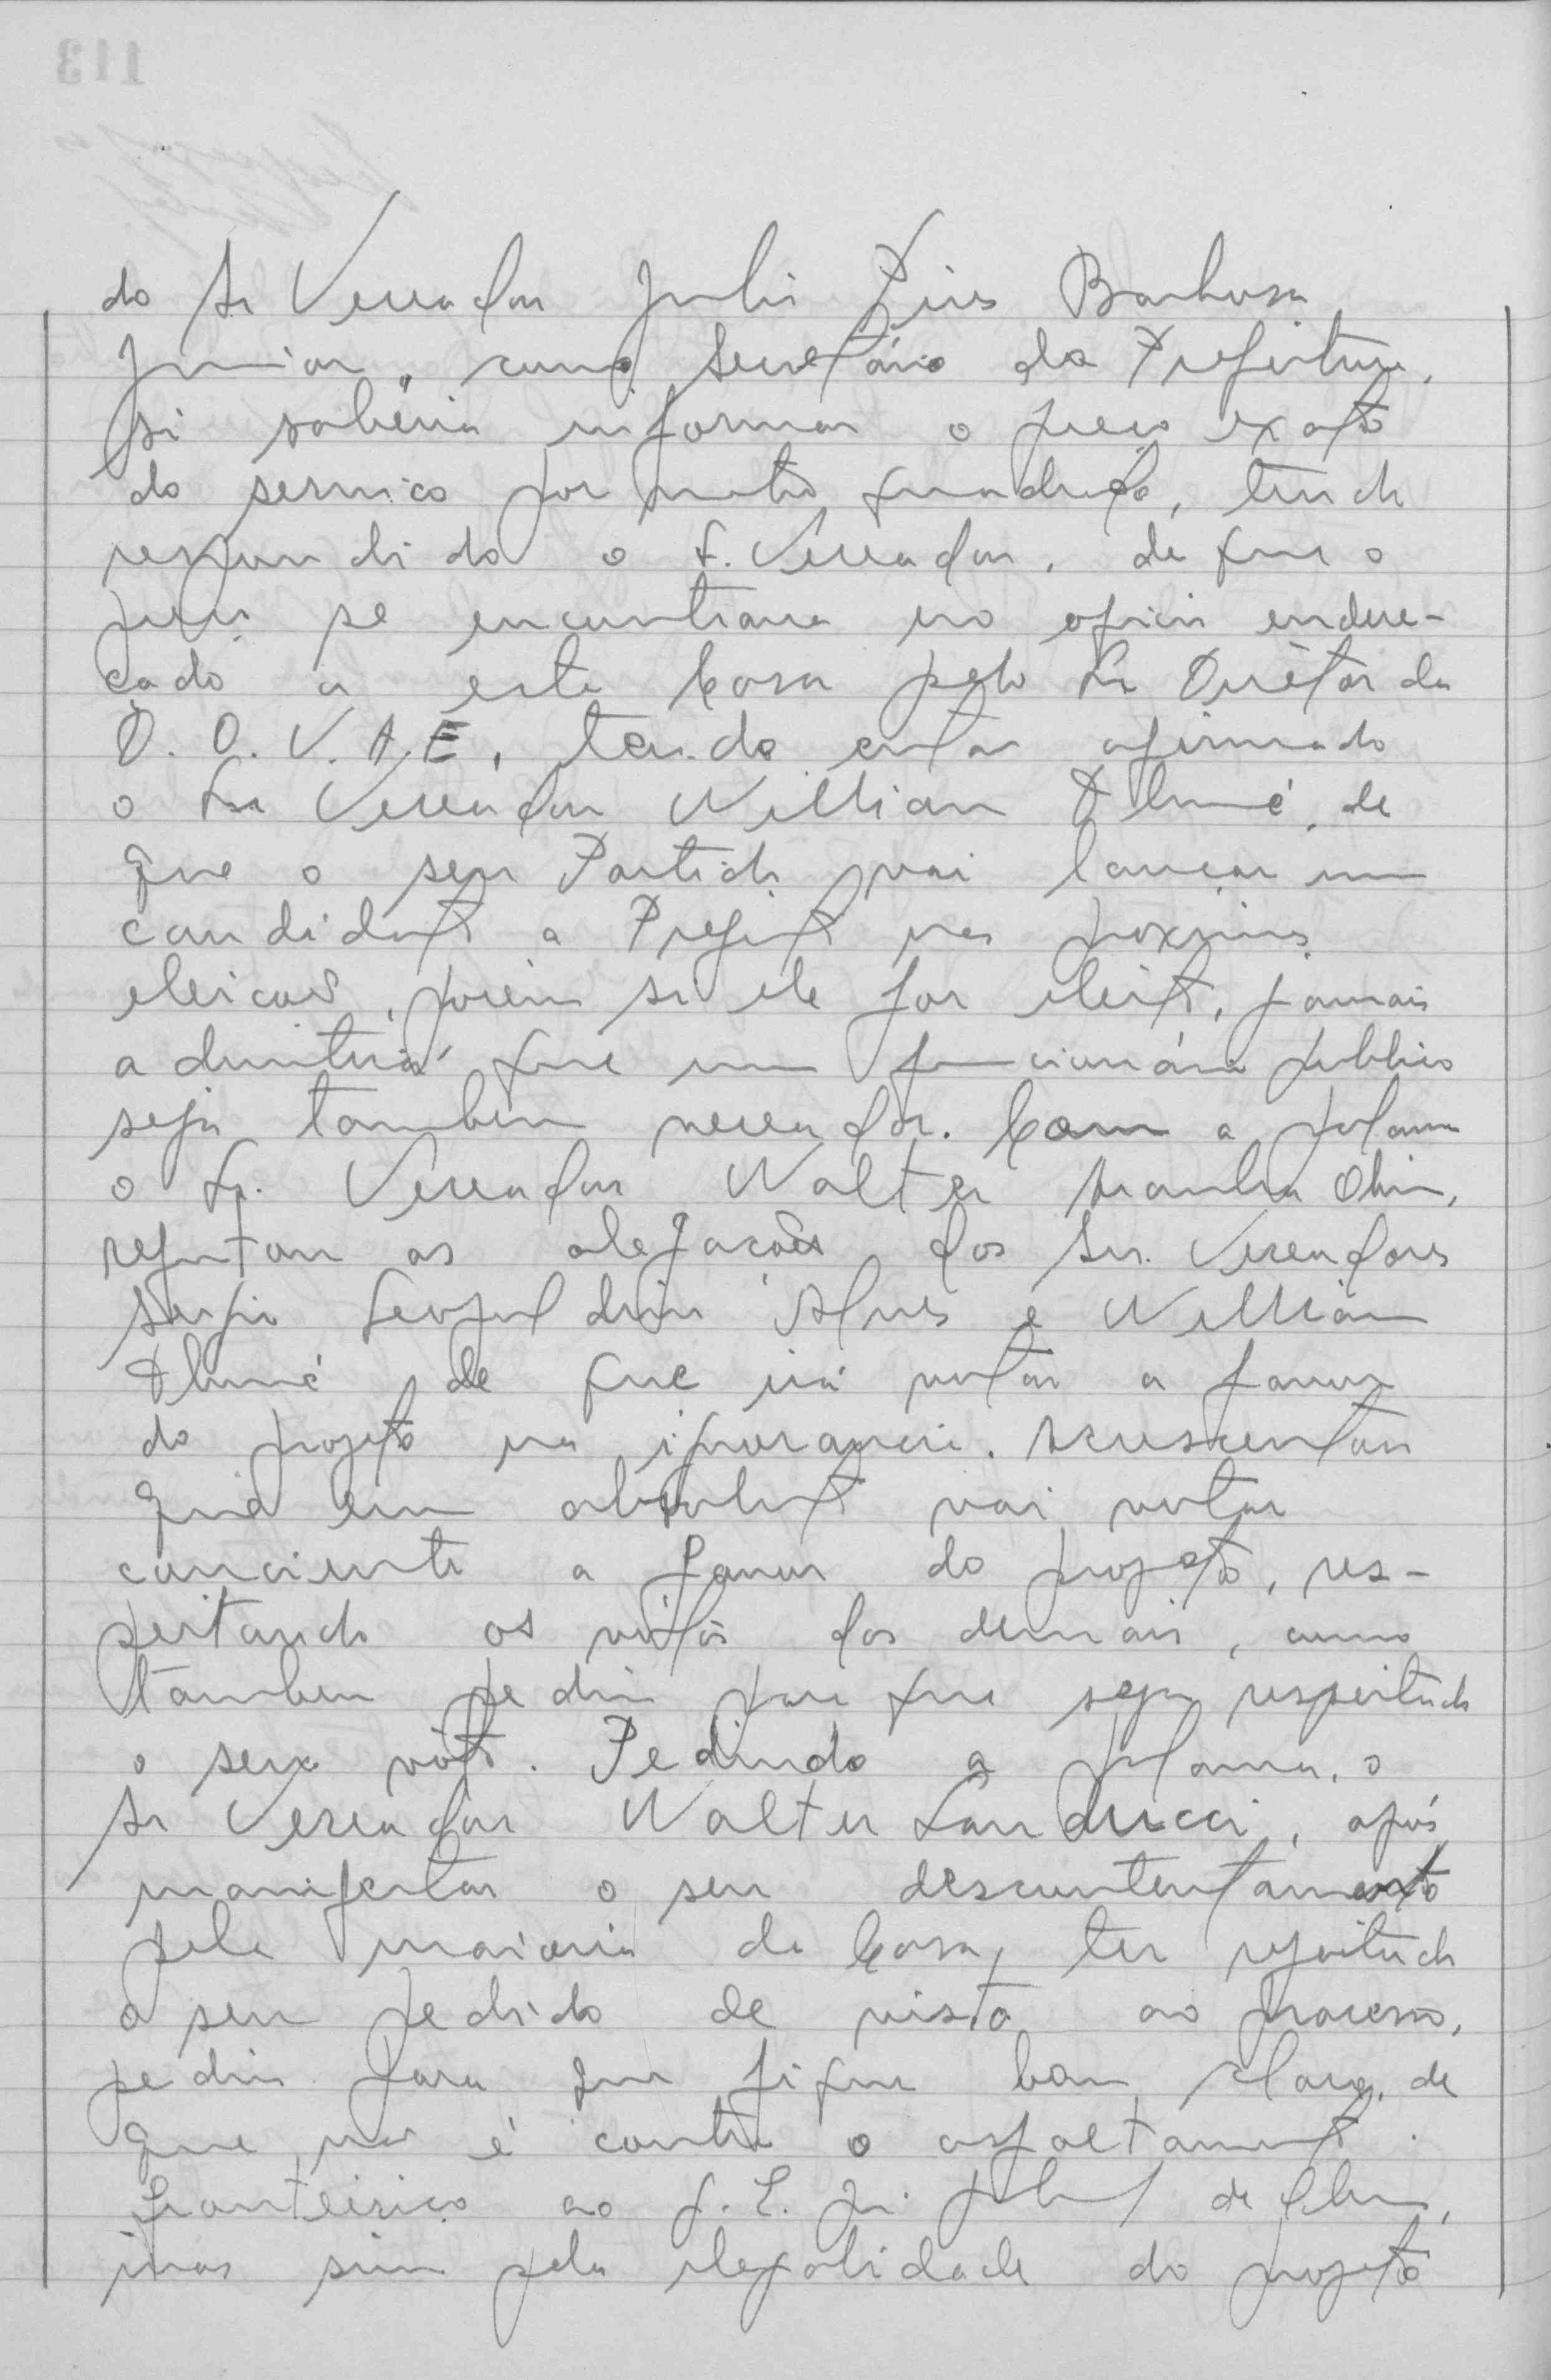 do Sr Vereador Julio Pires Barbosa
Junior, como Secretário da Prefeitura,
si saberia informar o preço exato
do serviço por metro quadrado, tendo
respondido o S. Vereador, de que o
preço se encontrava no oficio endere-
çado a esta Casa pelo Sr Diretor da
D. O. V. A. E, tendo então afirmado
o Sr Vereador Willian, de
que o seu Partido vai lançar um
candidato a Prefeito nas proximas
eleicoes, porém si ele for eleito, jamais
admitirá que um funcionário publico
seja tambem vereador. Com a palavra
o Sr. Vereador Walter,
refutou as alegações dos Srs. Vereadores
Sergio Leopoldino Alves e Willian
de que irá votar a favor
do projeto na ignorancia. Acrescentou
que em absoluto vai votar
conciente a favor do projeto, res-
peitando os votos dos demais, como
tambem pediu para que seja respeitado
o seu vóto. Pedindo a palavra, o
Sr Vereador Walter Landucci, após
manifestar o seu descontentamento
pela maioria da Casa, ter rejeitado
o seu pedido de vista ao processo,
pediu para que fique bem claro, de
que não é contra o asfaltamento
fronteiriço ao
mas sim pela ilegalidade do projeto